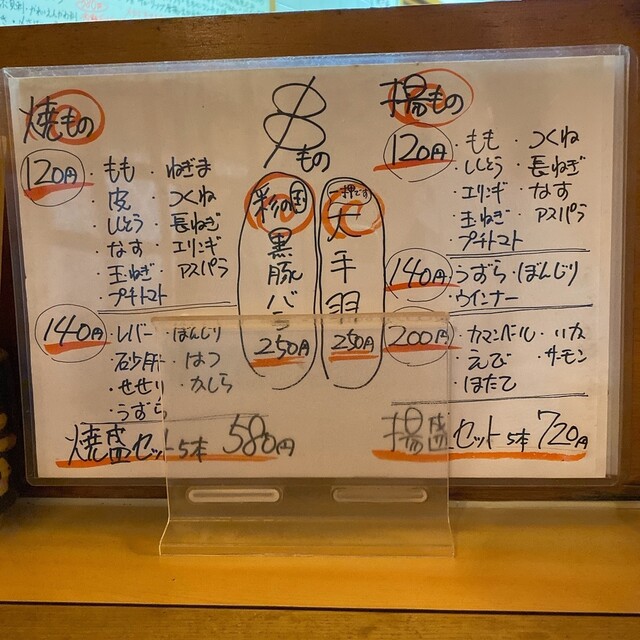 串もの
焼もの
120円
・もも ・ねぎま
・皮 ・つくね
・ししとう ・長ねぎ
・なす ・エリンギ
・玉ねぎ ・アスパラ
・プチトマト
140円
・レバー ・ぼんじり
・砂肝 ・はつ
・せせり ・かしら
・うずら
焼盛セット5本 580円
彩の国
黒豚バラ
250円
一押です
大手羽
250円
揚もの
120円
・もも ・つくね
・ししとう ・長ねぎ
・エリンギ ・なす
・玉ねぎ ・アスパラ
・プチトマト
140円
うずら・ぼんじり
・ウインナー
200円
・カマンベール・いか
・えび ・サーモン
・ほたて
揚盛セット5本 720円